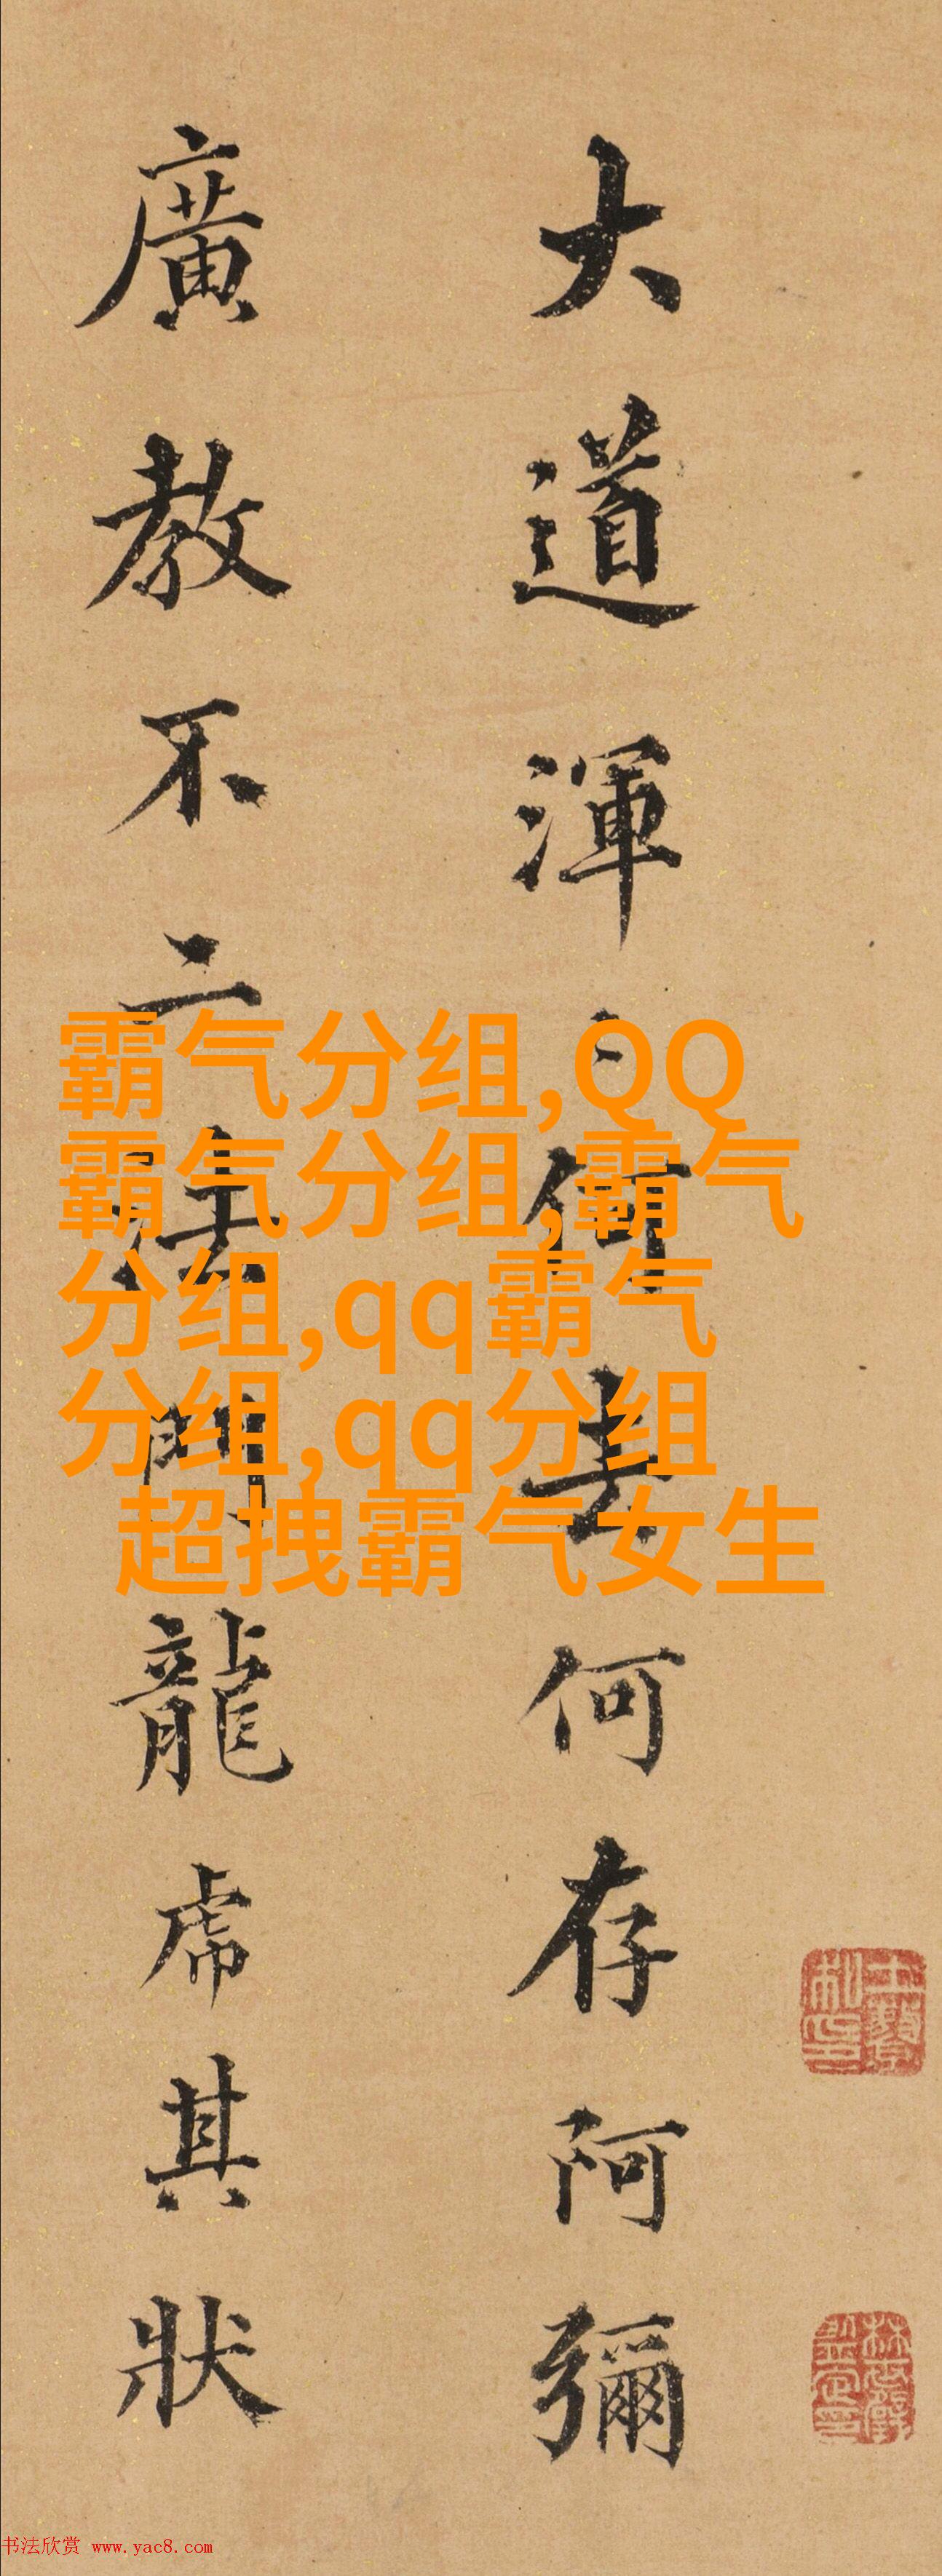 大道渾〻何去何存阿彌
廣教不二法門龍虎其狀
霸气分组,QQ
霸气分组,霸气
分组,qq霸气
分组,qq分组
超拽霸气女生
书法欣赏 www.yac8.com